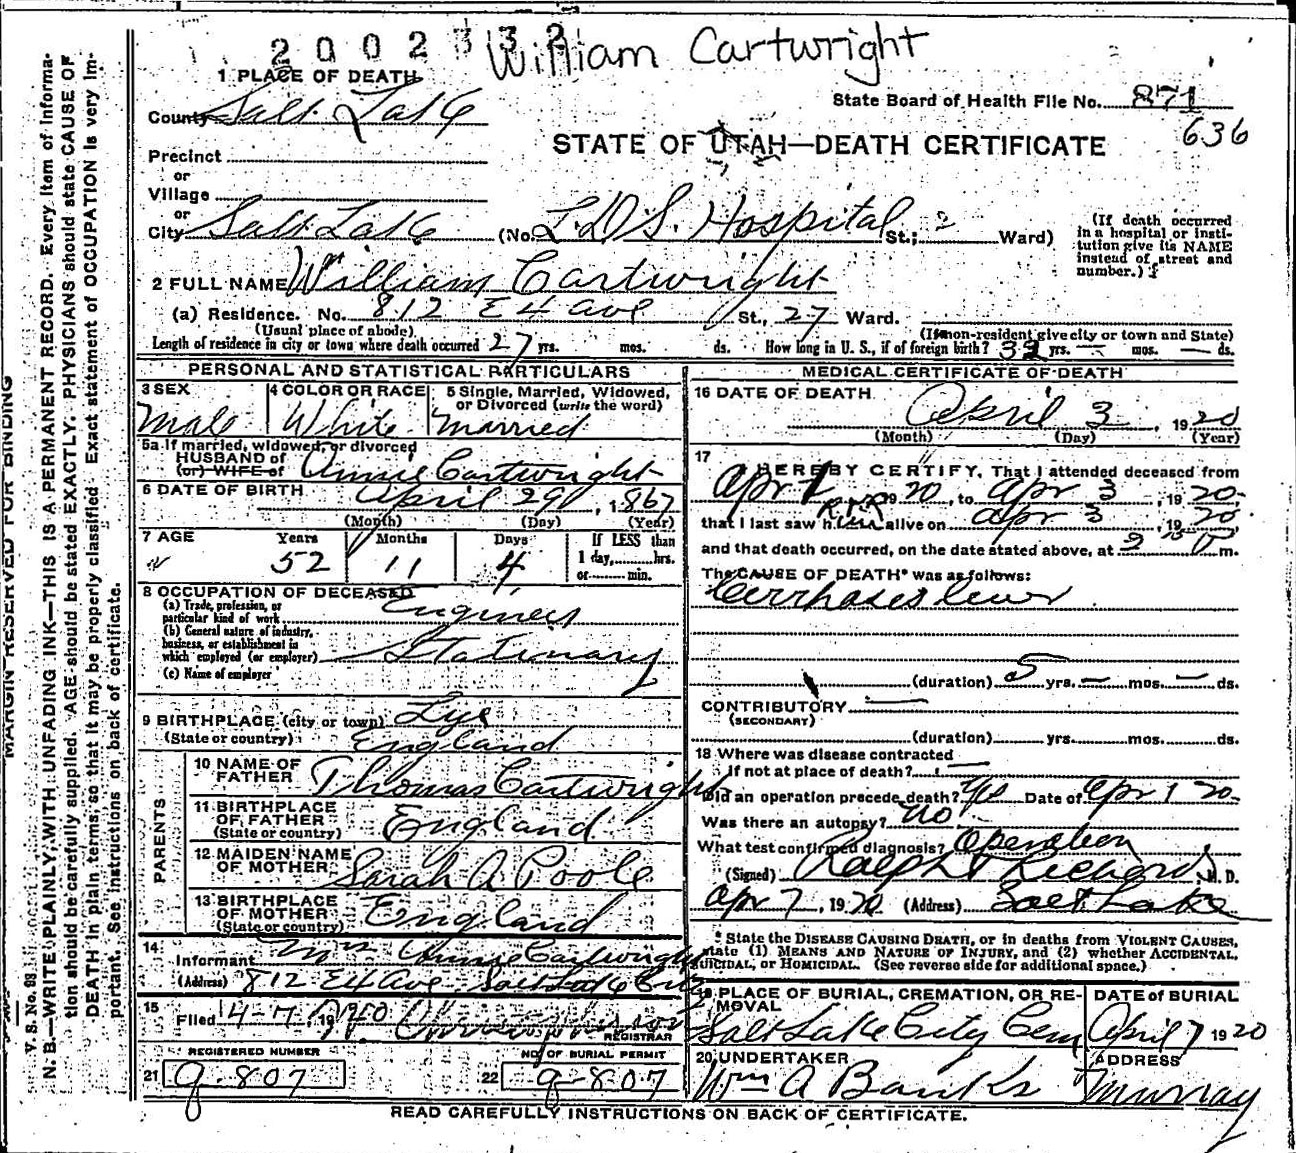 2002332
William Cartwright
1 PLACE OF DEATH
County Salt Lake
State Board of Health File No. 871
636
STATE OF UTAH—DEATH CERTIFICATE
Precinct
or
Village
or
City Salt Lake (No. L.D.S. Hospital St.; 2 Ward)
(If death occurred in a hospital or institution give its NAME instead of street and number.)
2 FULL NAME William Cartwright
(a) Residence. No. 812 E 4 Ave St., 27 Ward.
(Usual place of abode) (If non-resident give city or town and State)
Length of residence in city or town where death occurred 27 yrs. mos. ds. How long in U. S., if of foreign birth? yrs. — mos. — ds.
PERSONAL AND STATISTICAL PARTICULARS
3 SEX Male
4 COLOR OR RACE White
5 Single, Married, Widowed, or Divorced (write the word) Married
5a If married, widowed, or divorced
HUSBAND of
(or) WIFE of Annie Cartwright
6 DATE OF BIRTH April 29, 1867
(Month) (Day) (Year)
7 AGE Years 52 Months 11 Days 4 If LESS than 1 day,......hrs. or......min.
8 OCCUPATION OF DECEASED
(a) Trade, profession, or particular kind of work Engineer
(b) General nature of industry, business, or establishment in which employed (or employer) Stationary
(c) Name of employer
9 BIRTHPLACE (city or town) Lye
(State or country) England
PARENTS
10 NAME OF FATHER Thomas Cartwright
11 BIRTHPLACE OF FATHER (State or country) England
12 MAIDEN NAME OF MOTHER Sarah A Poole
13 BIRTHPLACE OF MOTHER (State or country) England
14 Informant Mrs Annie Cartwright
(Address) 812 E 4 Ave Salt Lake City
15 Filed 4-7, 1920
REGISTRAR
REGISTERED NUMBER
21 g-807
NO. OF BURIAL PERMIT
22 g-807
MEDICAL CERTIFICATE OF DEATH
16 DATE OF DEATH April 3, 1920
(Month) (Day) (Year)
17 I HEREBY CERTIFY, That I attended deceased from
Apr 1 1920, to Apr 3, 1920
that I last saw him alive on Apr 3, 1920
and that death occurred, on the date stated above, at P m.
The CAUSE OF DEATH* was as follows:
Cerrhoses liver
(duration) 5 yrs. — mos. — ds.
CONTRIBUTORY —
(SECONDARY)
(duration) yrs. mos. ds.
18 Where was disease contracted —
If not at place of death?
Did an operation precede death? Yes Date of Apr 1 20
Was there an autopsy? No
What test confirmed diagnosis? Operation
(Signed) Ralph T Richards, M. D.
Apr 7, 1920 (Address) Salt Lake
* State the DISEASE CAUSING DEATH, or in deaths from VIOLENT CAUSES, state (1) MEANS AND NATURE OF INJURY, and (2) whether ACCIDENTAL, SUICIDAL, or HOMICIDAL. (See reverse side for additional space.)
19 PLACE OF BURIAL, CREMATION, OR REMOVAL Salt Lake City Cem
DATE of BURIAL April 7 1920
20 UNDERTAKER Wm A Banks
ADDRESS Murray
READ CAREFULLY INSTRUCTIONS ON BACK OF CERTIFICATE.
MARGIN RESERVED FOR BINDING
V. S. No. 98
N. B.—WRITE PLAINLY, WITH UNFADING INK—THIS IS A PERMANENT RECORD. Every item of information should be carefully supplied. AGE should be stated EXACTLY. PHYSICIANS should state CAUSE OF DEATH in plain terms, so that it may be properly classified. Exact statement of OCCUPATION is very important. See instructions on back of certificate.